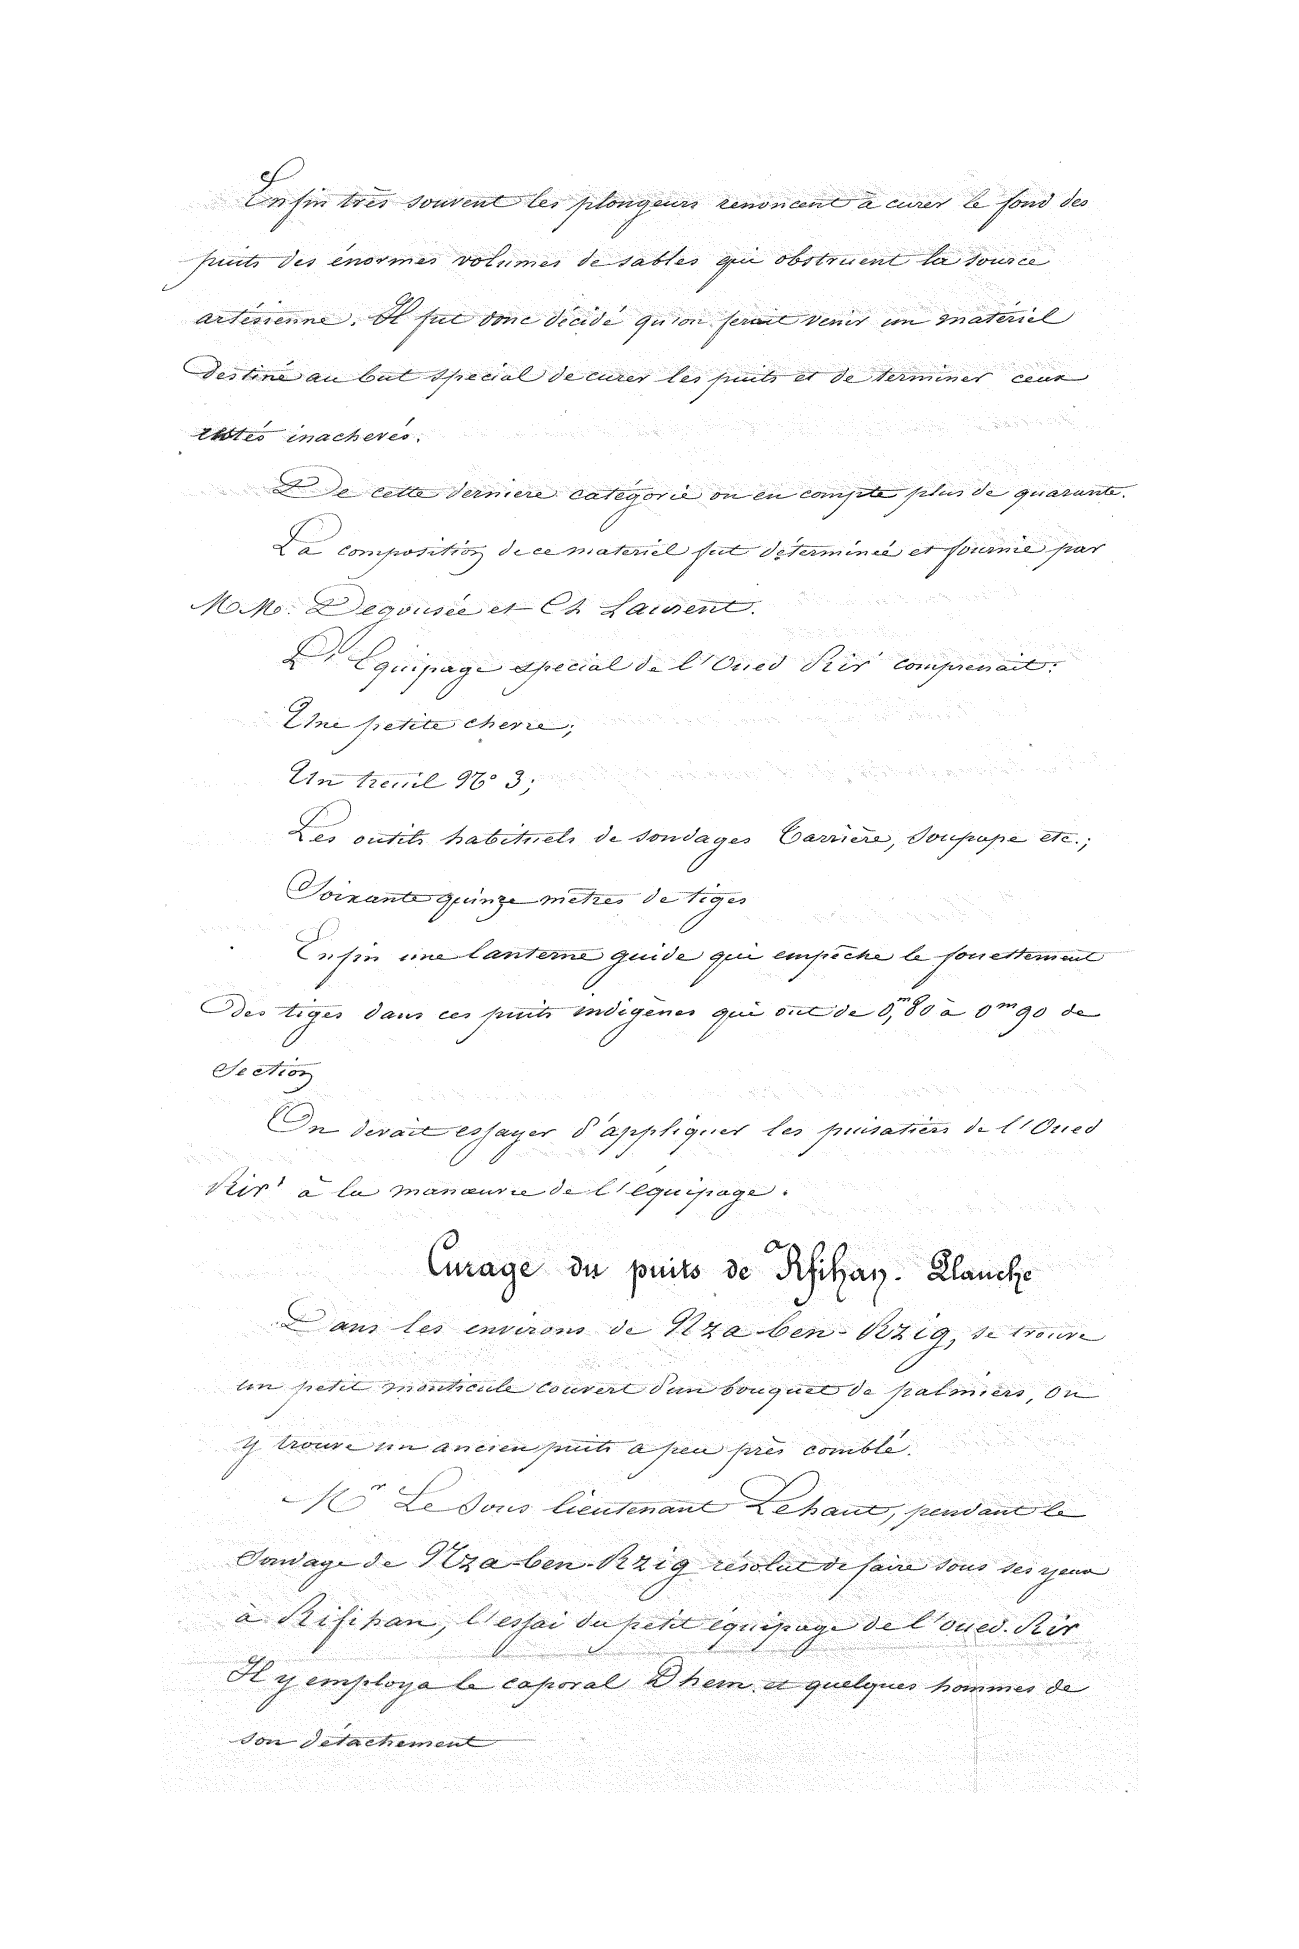 Enfin très souvent les plongeurs renoncent à curer le fond des
puits des énormes volumes de sables qui obstruent la source
artésienne. Il fut donc décidé qu'on ferait venir un matériel
destiné au but spécial de curer les puits et de terminer ceux
restés inachevés.
De cette dernière catégorie on en compte plus de quarante.
La composition de ce matériel fut déterminée et fournie par
M.M. Degousée et Ch Laurent.
L'Equipage spécial de l'Oued Rir' comprenait:
Une petite chevre;
Un treuil No 3;
Les outils habituels de sondages Tarrière, Soupape etc.;
Soixante quinze mètres de tiges
Enfin une lanterne guide qui empêche le fouettement
des tiges dans ces puits indigènes qui ont de 0,m80 à 0m90 de
Section
On devait essayer d'appliquer les puisatiers de l'Oued
Rir' à la manœuvre de l'équipage.
Curage du puits de Rfihan. Planche
Dans les environs de Nza-ben-Rzig, se trouve
un petit monticule couvert d'un bouquet de palmiers, on
y trouve un ancien puits a peu près comblé.
Mr Le Sous lieutenant Lehaut, pendant le
Sondage de Nza-ben-Rzig résolut de faire sous ses yeux
à Rifihan, l'essai du petit équipage de l'oued. Rir
Il y employa le caporal Dhem et quelques hommes de
son détachement